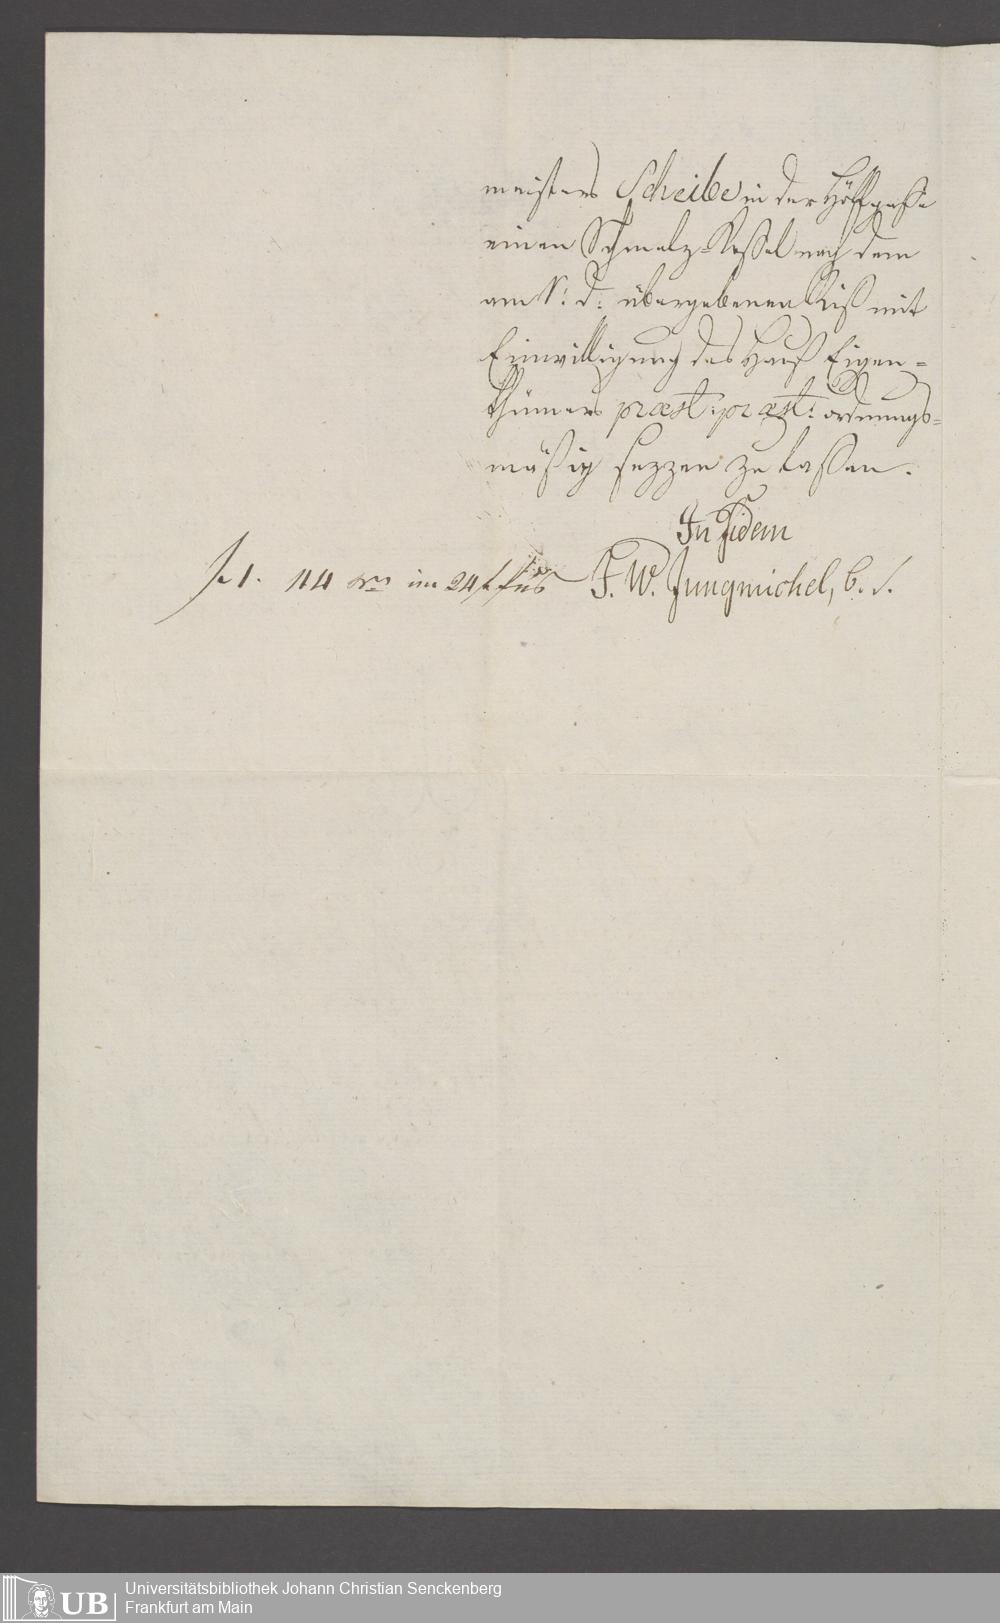 meisters Scheibe in der Höllgasse
einen Schmelz-Kessel nach dem
am S: d: übergebenen Riß mit
Einwilligung des Hauß Eigen=
thümers præst: præst: ordnungs=
mäßig sezzen zu lassen.
In fidem
f 1. 44 xr im 24 f fus F. W. Jungmichel, b. s.
UB Universitätsbibliothek Johann Christian Senckenberg
Frankfurt am Main